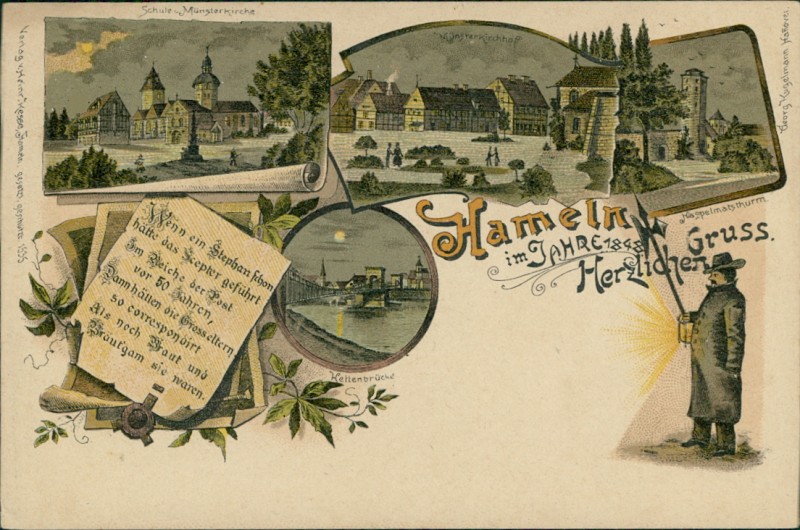 Schule u. Münsterkirche.
Münsterkirchhof
Haspelmatsthurm.
Hameln
im JAHRE 1848
Herzlichen Gruss.
Wenn ein Stephan schon
hätte das Zepter geführt
Im Reiche der Post
vor 50 Jahren,
Dann hätten die Grosseltern
so correspondirt
Als noch Braut und
Bräutgam sie waren.
Kettenbrücke
Verlag v. Heinr.
Georg